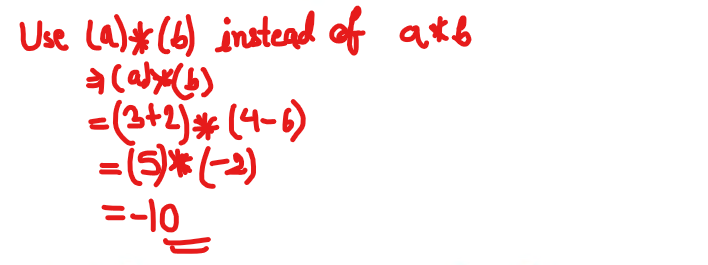 Use (a)*(b) instead of a*b
⇒(a)*(b)
=(3+2)*(4-6)
=(5)*(-2)
=-10